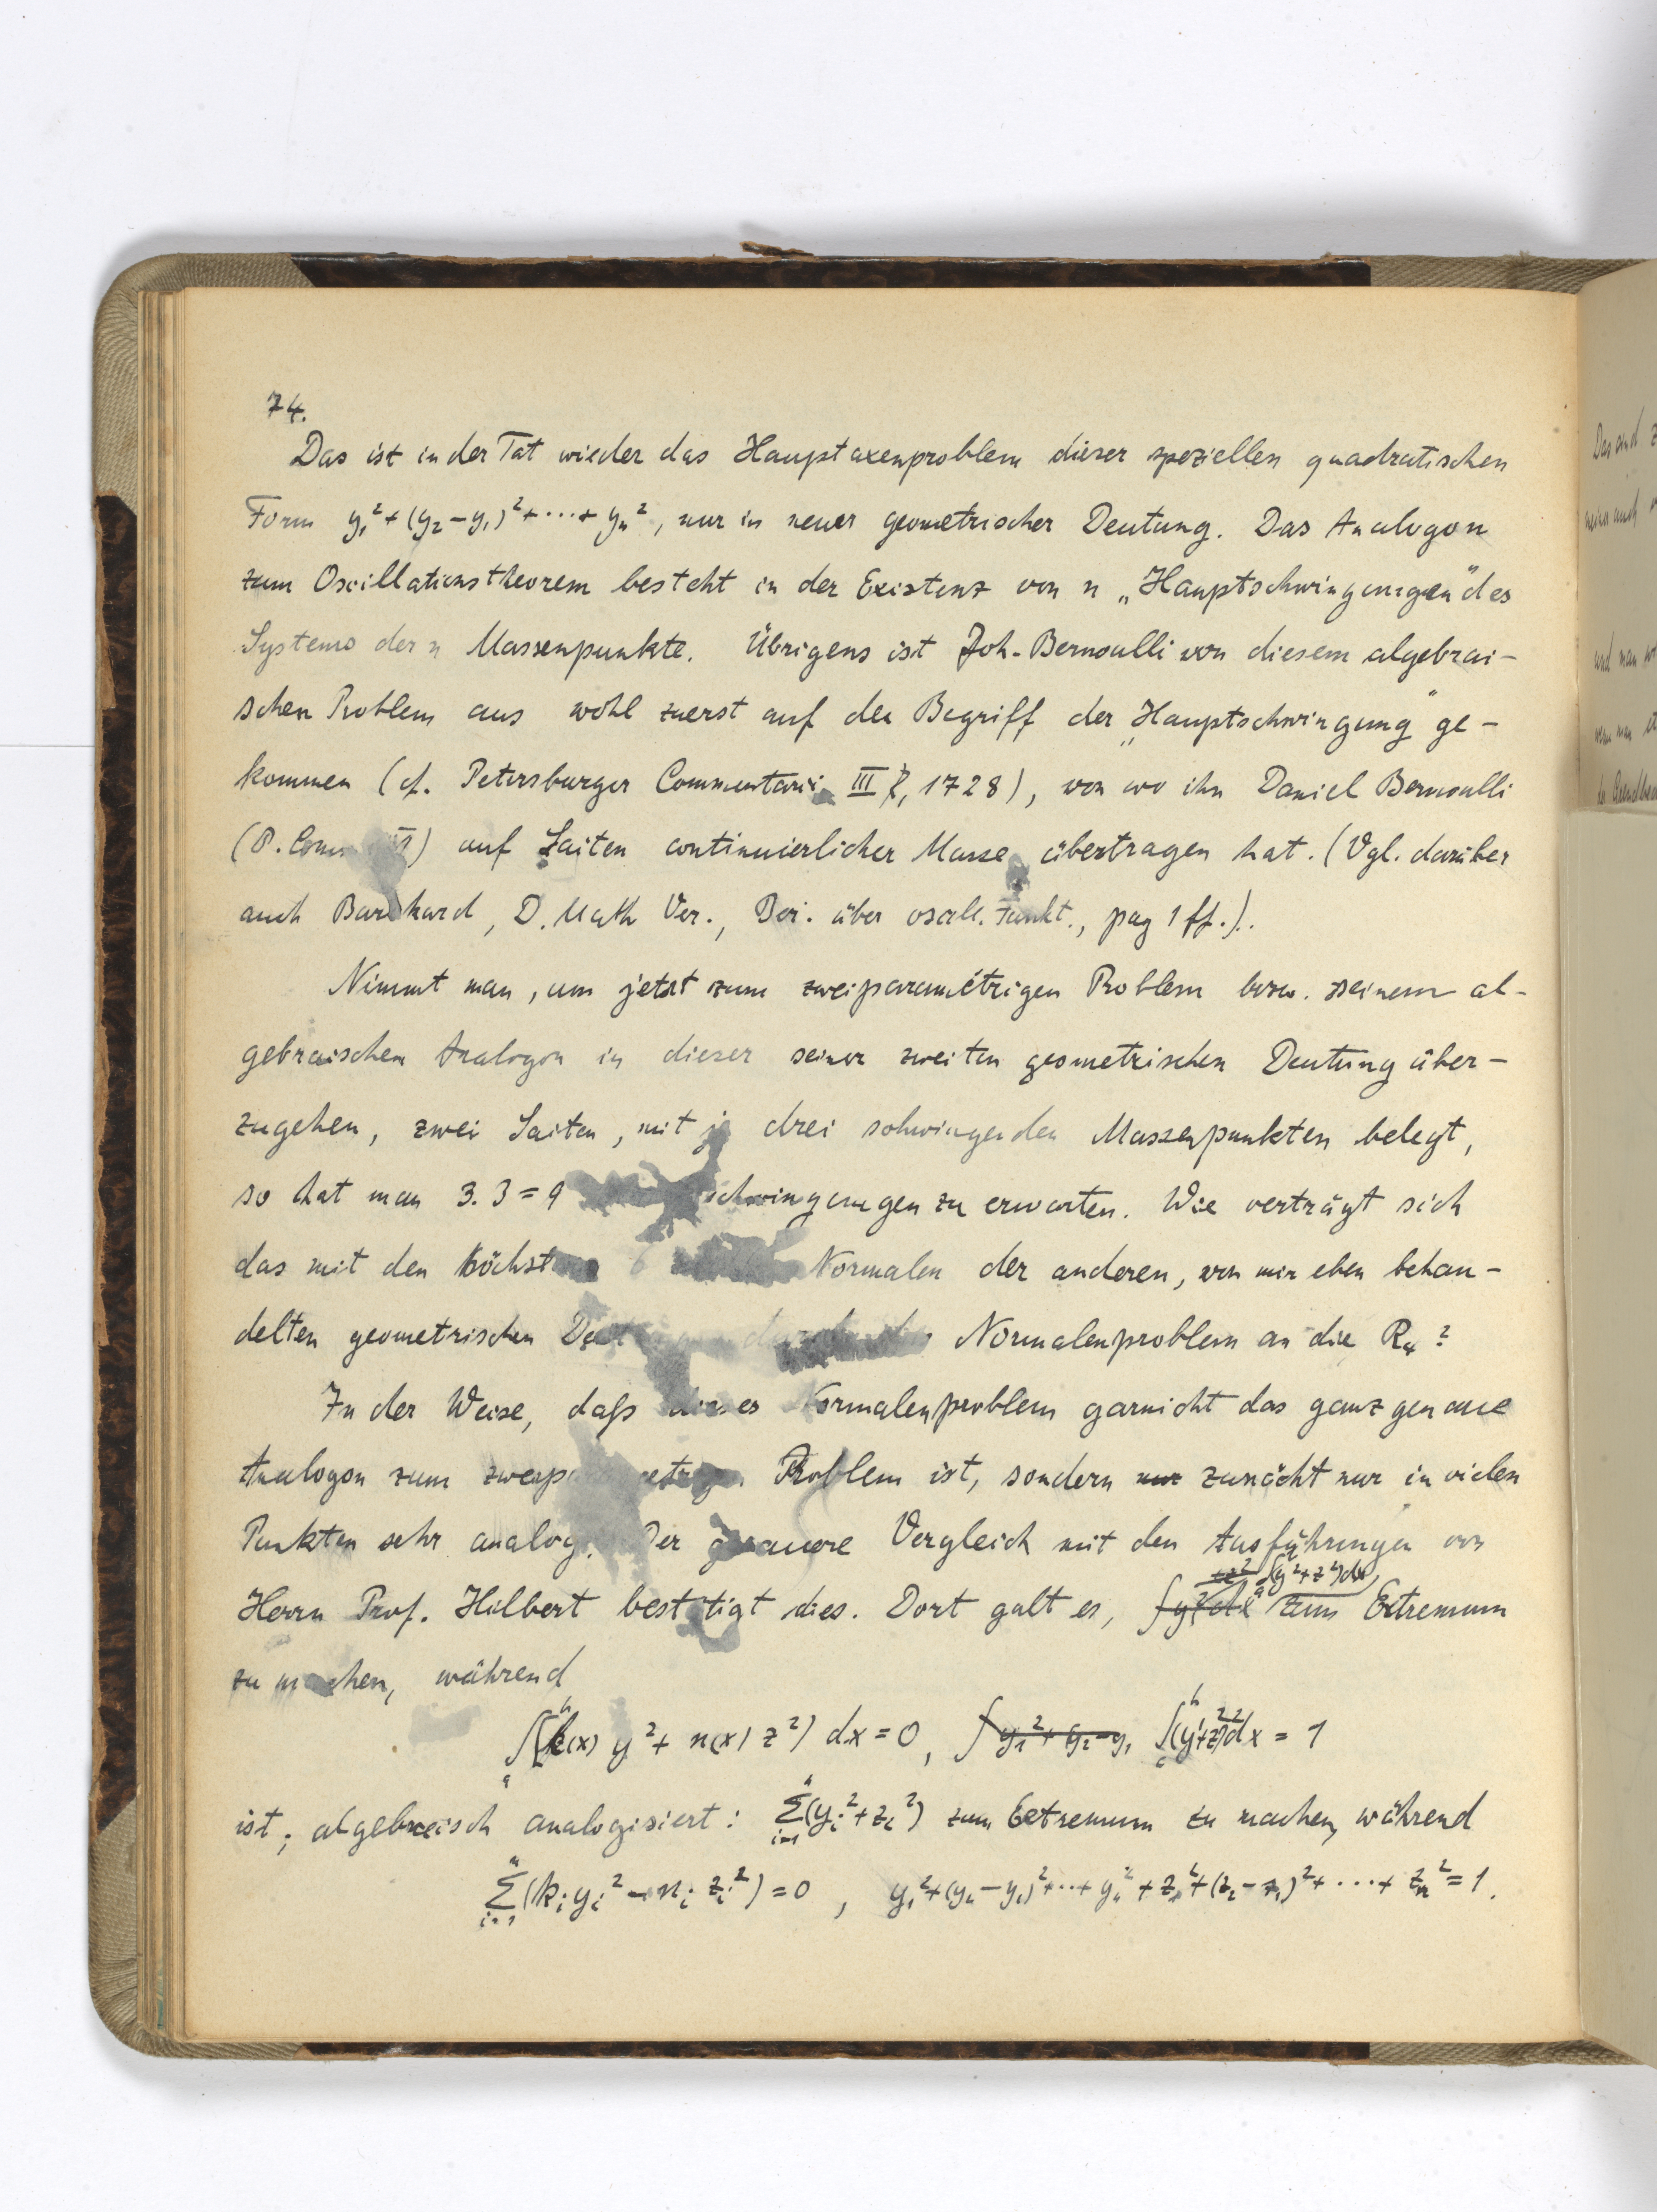 74.
Das ist in der Tat wieder das Hauptaxenproblem dieser speziellen quadratischen
Form y₁² + (y₂ – y₁)² + ··· + yₙ², nur in neuer geometrischer Deutung. Das Analogon
zum Oscillationstheorem besteht in der Existenz von n „Hauptschwingungen" des
Systems der n Massenpunkte. Übrigens ist Joh. Bernoulli von diesem algebrai-
schen Problem aus wohl zuerst auf den Begriff der „Hauptschwingung" ge-
kommen (cf. Petersburger Commentarii III, 1728), von wo ihn Daniel Bernoulli
(P. Comm. ) auf Saiten continuierlicher Masse übertragen hat. (Vgl. darüber
auch Burkhard, D. Math Ver., Ber. über oscill. Funkt., pag 1 ff.).
Nimmt man, um jetzt zum zweiparamétrigen Problem bzw. seinem al-
gebraischen Analogon in dieser seiner zweiten geometrischen Deutung über-
zugehen, zwei Saiten, mit je drei schwingenden Massenpunkten belegt,
so hat man 3. 3 = 9 schwingungen zu erwarten. Wie verträgt sich
das mit den höchstens 6 Normalen der anderen, von mir eben behan-
delten geometrischen Normalenproblem an die R₄?
In der Weise, daß dieses Normalenproblem garnicht das ganz genaue
Analogon zum zweiparametrigen Problem ist, sondern nur zunächt nur in vielen
Punkten sehr analog. Der genauere Vergleich mit den Ausführungen von
Herrn Prof. Hilbert bestätigt dies. Dort galt es, ∫(y²+z²)dx zum Extremum
zu machen, während
∫ₐᵇ(k(x) y² + n(x) z²) dx = 0, ∫y₁² + y₂–y₁ ∫ₐᵇ(y'²+z'²)dx = 1
ist; algebraisch analogisiert: Σᵢ₌₁ⁿ(yᵢ² + zᵢ²) zum Extremum zu machen, während
Σᵢ₌₁ⁿ(kᵢ yᵢ² – nᵢ zᵢ²) = 0 , y₁² + (y₂ – y₁)² + ·· + yₙ² + z₁² + (z₂ – z₁)² + ··· + zₙ² = 1.